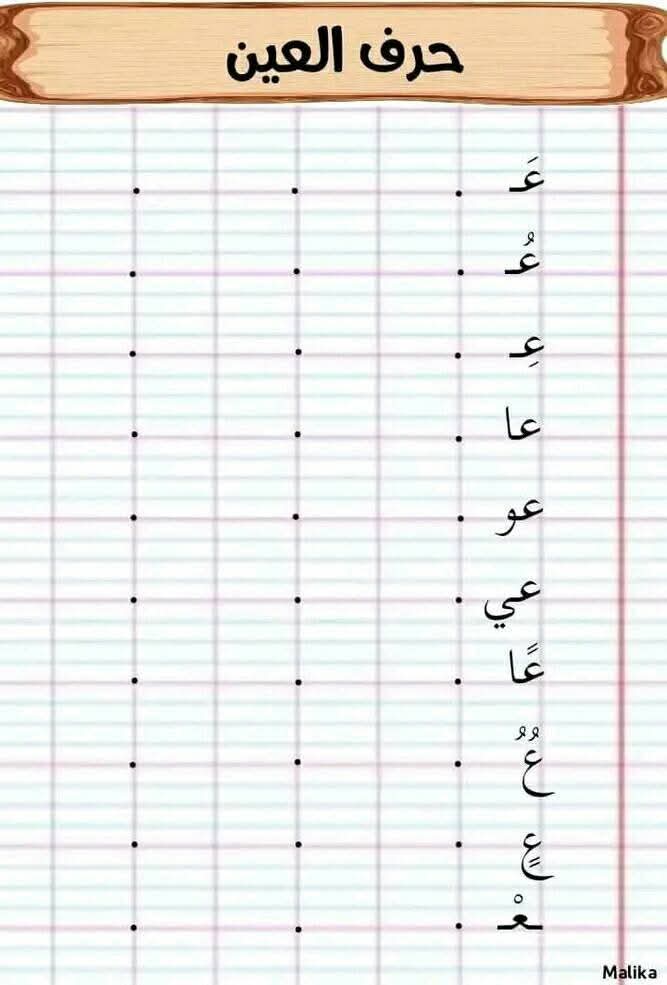 حرف العين
عَـ . . .
عُـ . . .
عِـ . . .
عا . . .
عو . . .
عي . . .
عًا . . .
عٌ . . .
عٍ . . .
ـعْـ . . .
Malika